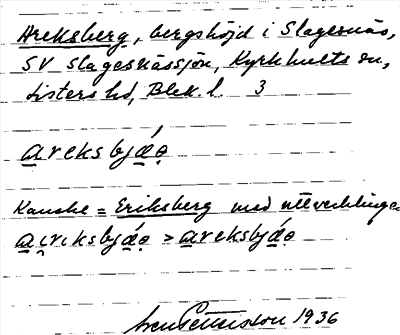 Areksberg, bergshöjd i Slagesnäs,
SV Slagesnässjön, Kyrkhults sn,
Listers hd, Blek. l. 3
areksbjǽǝ
Kanske = Eriksberg med utvecklingen
ai̯reksbjǽǝ > areksbjǽǝ
Pettersson 1936